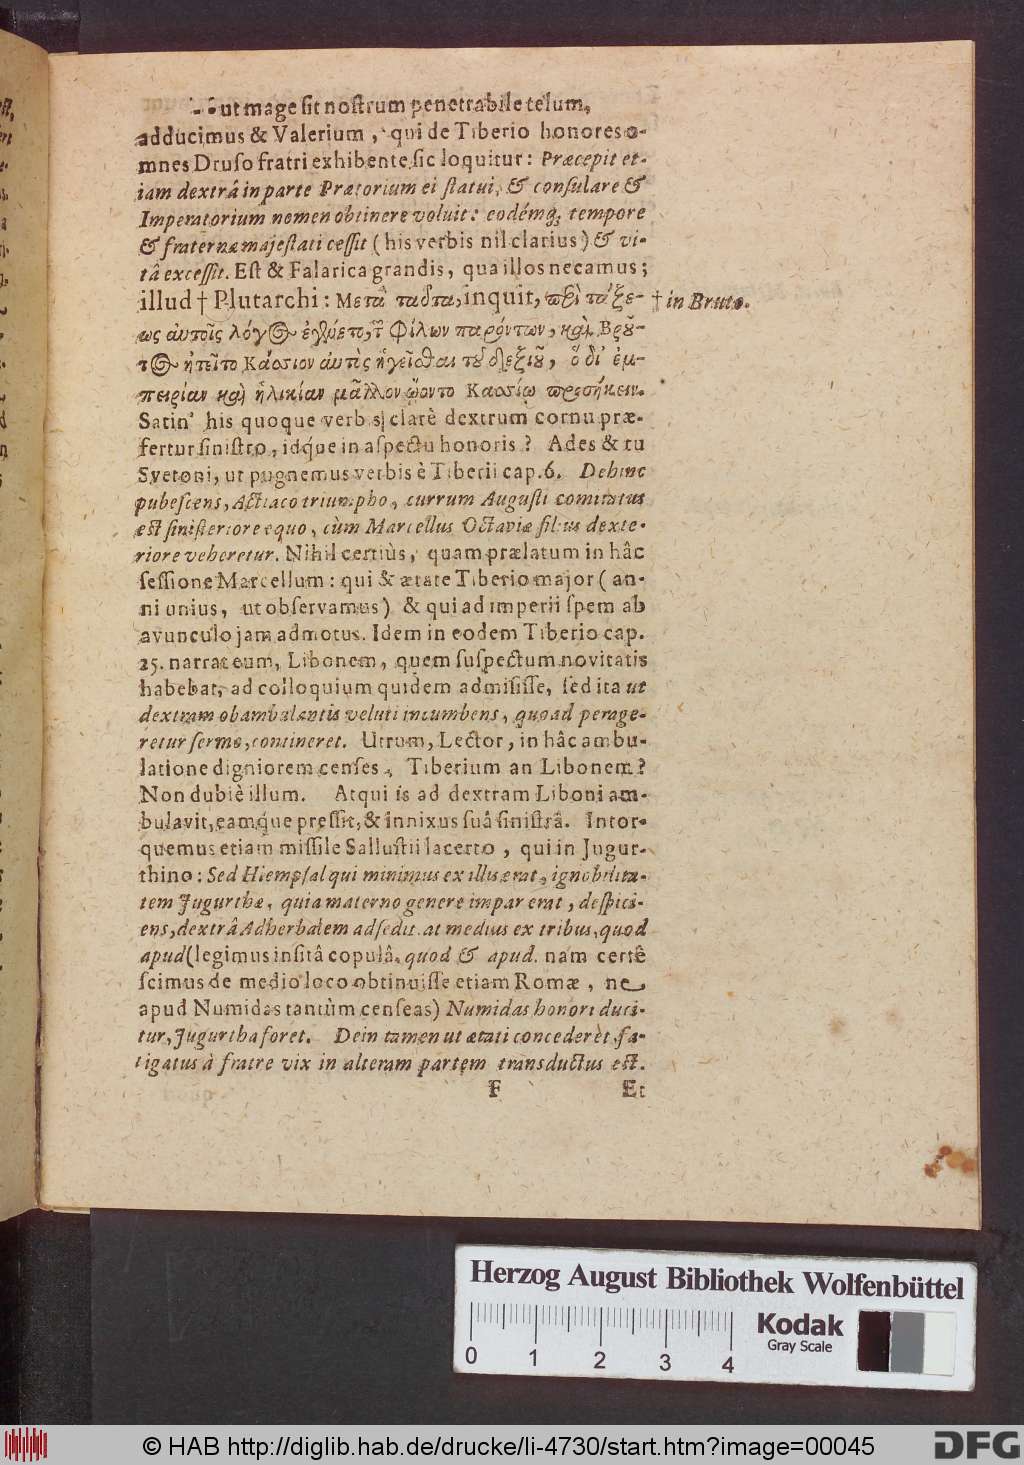 ut mage sit nostrum penetrabile telum,
adducimus & Valerium, qui de Tiberio honores o-
mnes Druso fratri exhibente sic loquitur: Præcepit et-
iam dextrâ in parte Prætorium ei statui, & consulare &
Imperatorium nomen obtinere voluit: eodémq; tempore
& fraternæ majestati cessit (his verbis nil clarius) & vi-
tâ excessit. Est & Falarica grandis, qua illos necamus;
illud † Plutarchi: Μετὰ ταῦτα, inquit, περὶ τάξε- † in Bruto.
ως αὐτοῖς λόγος ἐγένετο, τ̃ Φίλων παρόντων, καὶ Βροῦ-
τος ᾐτεῖτο Κάσσιον αὐτὸς ἡγεῖσθαι τοῦ δεξιοῦ, ὃ δι' ἐμ-
πειρίαν καὶ ἡλικίαν μᾶλλον ᾤοντο Κασσίῳ προσήκειν.
Satin' his quoque verbis clarè dextrum cornu præ-
fertur sinistro, idque in aspectu honoris? Ades & tu
Svetoni, ut pugnemus verbis è Tiberii cap. 6. Dehinc
pubescens, Actiaco triumpho, currum Augusti comitatus
est sinisteriore equo, cùm Marcellus Octaviæ filius dexte-
riore veheretur. Nihil certiùs, quam prælatum in hâc
sessione Marcellum: qui & ætate Tiberio major (an-
ni unius, ut observamus) & qui ad imperii spem ab
avunculo jam admotus. Idem in eodem Tiberio cap.
25. narrat eum, Libonem, quem suspectum novitatis
habebat, ad colloquium quidem admisisse, sed ita ut
dextram obambulantis veluti incumbens, quoad perage-
retur sermo, contineret. Utrum, Lector, in hâc ambu-
latione digniorem censes, Tiberium an Libonem?
Non dubiè illum. Atqui is ad dextram Liboni am-
bulavit, eamque pressit, & innixus suâ sinistrâ. Intor-
quemus etiam missile Sallustii lacerto, qui in Jugur-
thino: Sed Hiempsal qui minimus ex illis erat, ignobilita-
tem Jugurthæ, quia materno genere impar erat, despici-
ens, dextrâ Adherbalem adsedit. at medius ex tribus, quod
apud (legimus insitâ copulâ, quod & apud. nam certè
scimus de medio loco obtinuisse etiam Romæ, ne
apud Numidas tantùm censeas) Numidas honori duci-
tur, Jugurtha foret. Dein tamen ut ætati concederèt, fa-
tigatus à fratre vix in alteram partem transductus est.
F Et
Herzog August Bibliothek Wolfenbüttel
0 1 2 3 4
Kodak
Gray Scale
© HAB http://diglib.hab.de/drucke/li-4730/start.htm?image=00045
DFG